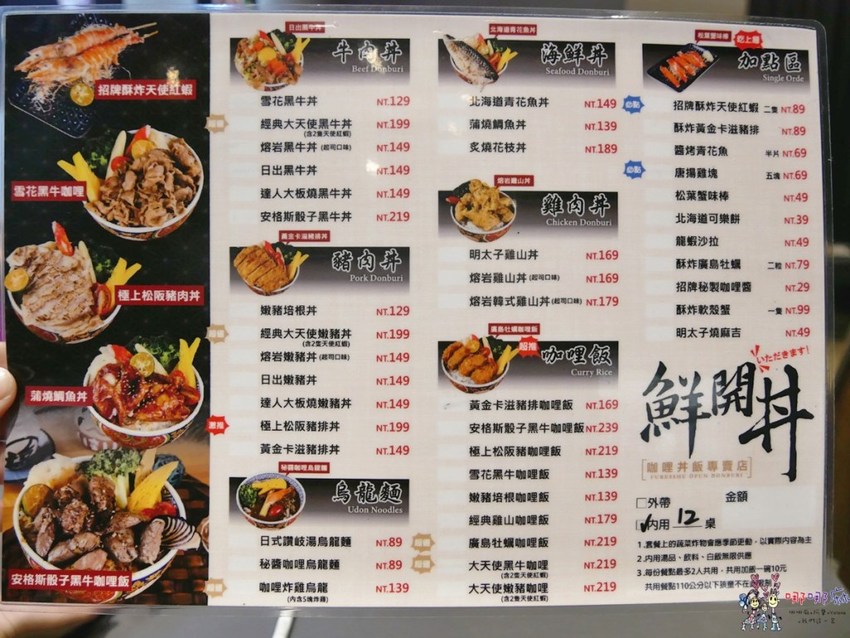 招牌酥炸天使紅蝦
雪花黑牛咖哩
極上松阪豬肉丼
蒲燒鯛魚丼
安格斯骰子黑牛咖哩飯
日出黑牛丼
牛肉丼
Beef Donburi
雪花黑牛丼 NT.129
經典大天使黑牛丼 NT.199
(含2隻天使紅蝦)
熔岩黑牛丼(起司口味) NT.149
日出黑牛丼 NT.149
達人大板燒黑牛丼 NT.149
安格斯骰子黑牛丼 NT.219
黃金卡滋豬排丼
豬肉丼
Pork Donburi
嫩豬培根丼 NT.129
經典大天使嫩豬丼 NT.199
(含2隻天使紅蝦)
熔岩嫩豬丼(起司口味) NT.149
日出嫩豬丼 NT.149
達人大板燒嫩豬丼 NT.149
激推
極上松阪豬排丼 NT.199
黃金卡滋豬排丼 NT.149
秘醬咖哩烏龍麵
烏龍麵
Udon Noodles
日式讚岐湯烏龍麵 NT.89
秘醬咖哩烏龍麵 NT.89
咖哩炸雞烏龍 NT.139
(內含5塊炸雞)
北海道青花魚丼
海鮮丼
Seafood Donburi
北海道青花魚丼 NT.149
蒲燒鯛魚丼 NT.139
炙燒花枝丼 NT.189
熔岩雞山丼
雞肉丼
Chicken Donburi
明太子雞山丼 NT.169
熔岩雞山丼(起司口味) NT.169
熔岩韓式雞山丼(起司口味) NT.179
廣島牡蠣咖哩飯
超推
咖哩飯
Curry Rice
黃金卡滋豬排咖哩飯 NT.169
安格斯骰子黑牛咖哩飯 NT.239
極上松阪豬咖哩飯 NT.219
雪花黑牛咖哩飯 NT.139
嫩豬培根咖哩飯 NT.139
經典雞山咖哩飯 NT.179
廣島牡蠣咖哩飯 NT.219
大天使黑牛咖哩 NT.219
(內含2隻天使紅蝦)
大天使嫩豬咖哩 NT.219
(內含2隻天使紅蝦)
松葉蟹味棒
吃上癮
加點區
Single Orde
必點
招牌酥炸天使紅蝦 二隻 NT.89
酥炸黃金卡滋豬排 NT.89
醬烤青花魚 半片 NT.69
必點
唐揚雞塊 五塊 NT.69
松葉蟹味棒 NT.49
北海道可樂餅 NT.39
龍蝦沙拉 NT.49
酥炸廣島牡蠣 二粒 NT.79
招牌秘製咖哩醬 NT.29
酥炸軟殼蟹 一隻 NT.99
明太子燒麻吉 NT.49
いただきます!
鮮開丼
咖哩丼飯專賣店
□外帶 金額
☑內用 12 桌
1.套餐上的蔬菜炸物會應季節更動，以實際內容為主
2.內用湯品、飲料、白飯無限供應
3.每份餐點最多2人共用，共用加飯一碗10元
共用餐點110公分以下孩童不在此限